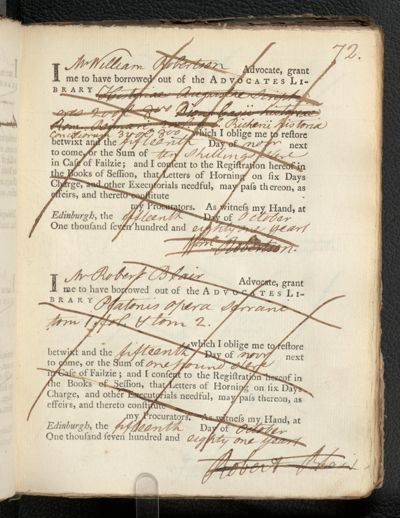 72.
I Mr William Robertson Advocate, grant
me to have borrowed out of the ADVOCATES LI-
BRARY Historiae Augustae
Dionis Cassii historiae
Rom. Richerii historia
which I oblige me to restore
betwixt and the fifteenth Day of novr next
to come, or the Sum of ten Shillings
in Case of Failzie; and I consent to the Registration hereof in
the Books of Session, that Letters of Horning on six Days
Charge, and other Executorials needful, may pass thereon, as
effeirs, and thereto constitute
my Procurators. As witness my Hand, at
Edinburgh, the fifteenth Day of October
One thousand seven hundred and eighty one years
Wm Robertson.
I Mr Robert Blair Advocate, grant
me to have borrowed out of the ADVOCATES LI-
BRARY Platonis opera Serrani
tom 1 fol. & tom 2.
which I oblige me to restore
betwixt and the fifteenth Day of novr next
to come, or the Sum of one pound
in Case of Failzie; and I consent to the Registration hereof in
the Books of Session, that Letters of Horning on six Days
Charge, and other Executorials needful, may pass thereon, as
effeirs, and thereto constitute
my Procurators. As witness my Hand, at
Edinburgh, the fifteenth Day of October
One thousand seven hundred and eighty one years
Robert Blair